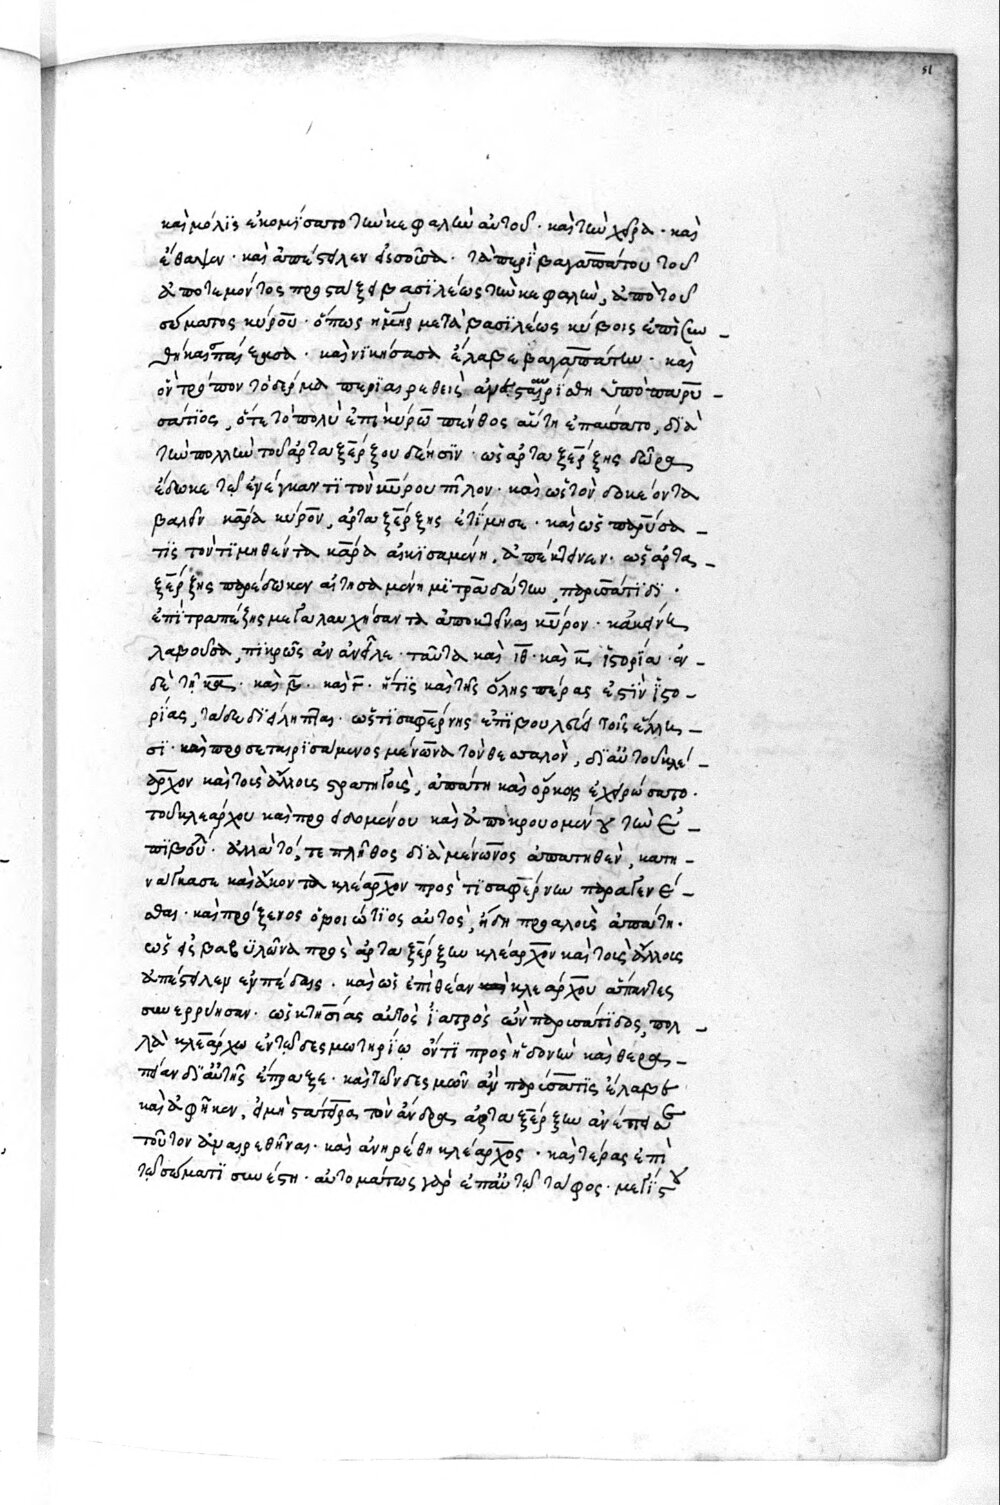 51
καὶ μόλϊς ἐκομίσατο τὴν κεφαλὴν αὐτοῦ· καὶ τὴν χεῖρα· καὶ
ἔθαψεν· καὶ ἀπέστειλεν εἰς σοῦσα· τὰ περὶ βαγαπάτου τοῦ
ἀποτεμόντος προστάξει βασϊλέως τὴν κεφαλὴν, ἀπὸ τοῦ
σώματος κύρου· ὅπως ἡ μήτηρ μετὰ βασϊλέως κύβοις ἐπὶ συν_
θήκαις παίξασα· καὶ νικήσασα ἔλαβε βαγαπάτην· καὶ
ὃν τρόπον τὸ δέρμα περιαιρεθεὶς ἀνεσταυρίσθη ὑπὸ παρυ
σάτϊος, ὅτε τὸ πολὺ ἐπὶ κύρω πένθος αὕτη ἐπαύσατο, δϊὰ
τὴν πολλὴν τοῦ ἀρταξέρξου δέησϊν· ὡς ἀρταξέρξης δῶρα
ἔδωκε τῶ ἐνέγκαντϊ τὸν κύρου πῖλον· καὶ ὡς τὸν δοκέοντα
βαλεῖν κᾶρα κῦρον, ἀρταξέρξης ἐτίμησε· καὶ ὡς παρύσα_
τϊς τὸν τϊμηθέντα κᾶρα αἰκϊσαμένη, ἀπέκτεινεν· ὡς ἀρτα_
ξέρξης παρέδωκεν αἰτησαμένη μϊτραδάτην, παρϊσάτϊδϊ·
ἐπὶ τραπέζης μεγαλαυχήσαντα ἀποκτεῖναι κῦρον· κἀκείνη
λαβοῦσα, πϊκρῶς ἀν ἀνεῖλε· ταῦτα καὶ ιθ· καὶ κ ϊστορία· ἐν_
δὲ τῆ κα· καὶ β· καὶ γ· ἥτϊς καὶ τῆς ὅλης πέρας ἐστὶν ϊστο_
ρίας, τάδε δϊείληπται· ὡς τϊσαφέρνης ἐπϊβουλεύει τοῖς ἕλλη_
σϊ· καὶ προσεταιρϊσάμενος μένωνα τὸν θεσσαλὸν, δϊ αὐτοῦ κλέ_
αρχον καὶ τοὺς ἄλλους στρατηγοὺς, ἀπάτη καὶ ὅρκοις ἐχειρώσατο·
τοῦ κλεάρχου καὶ προειδομένου καὶ ἀποκρουομένου τὴν ἐ_
πϊβουλήν· ἀλλὰ τό, τε πλῆθος δϊὰ μένωνος ἀπατηθὲν, κατη_
νάγκασε καὶ ἄκοντα κλέαρχον πρὸς τϊσαφέρνην παραγενέ_
σθαι· καὶ πρόξενος ὁ βοιώτϊος αὐτὸς, ἤδη προαλοὺς ἀπάτη·
ὡς εἰς βαβυλῶνα πρὸς ἀρταξέρξην κλέαρχον καὶ τοὺς ἄλλους
ἀπέστειλεν ἐν πέδαις· καὶ ὡς ἐπὶ θέαν καὶ κλεάρχου ἅπαντες
συνερρύησαν· ὡς κτησίας αὐτὸς ϊατρὸς ὢν παρϊσάτϊδος, πολ_
λὰ κλεάρχω ἐν τῶ δεσμωτηρίω ὄντϊ πρὸς ἡδονὴν καὶ θερα_
πείαν δϊ αὐτῆς ἔπραξε· καὶ τῶν δεσμῶν ἂν παρύσατϊς ἔλαβε
καὶ ἀφῆκεν, εἰ μὴ στάτειρα τὸν ἄνδρα ἀρταξέρξην ἀνέπεισε
τοῦτον ἀναιρεθῆναι· καὶ ἀνηρέθη κλέαρχος· καὶ τέρας ἐπὶ
τῶ σώματϊ συνέστη· αὐτομάτως γὰρ ἐπ αὐτῶ τάφος· μεγίστου